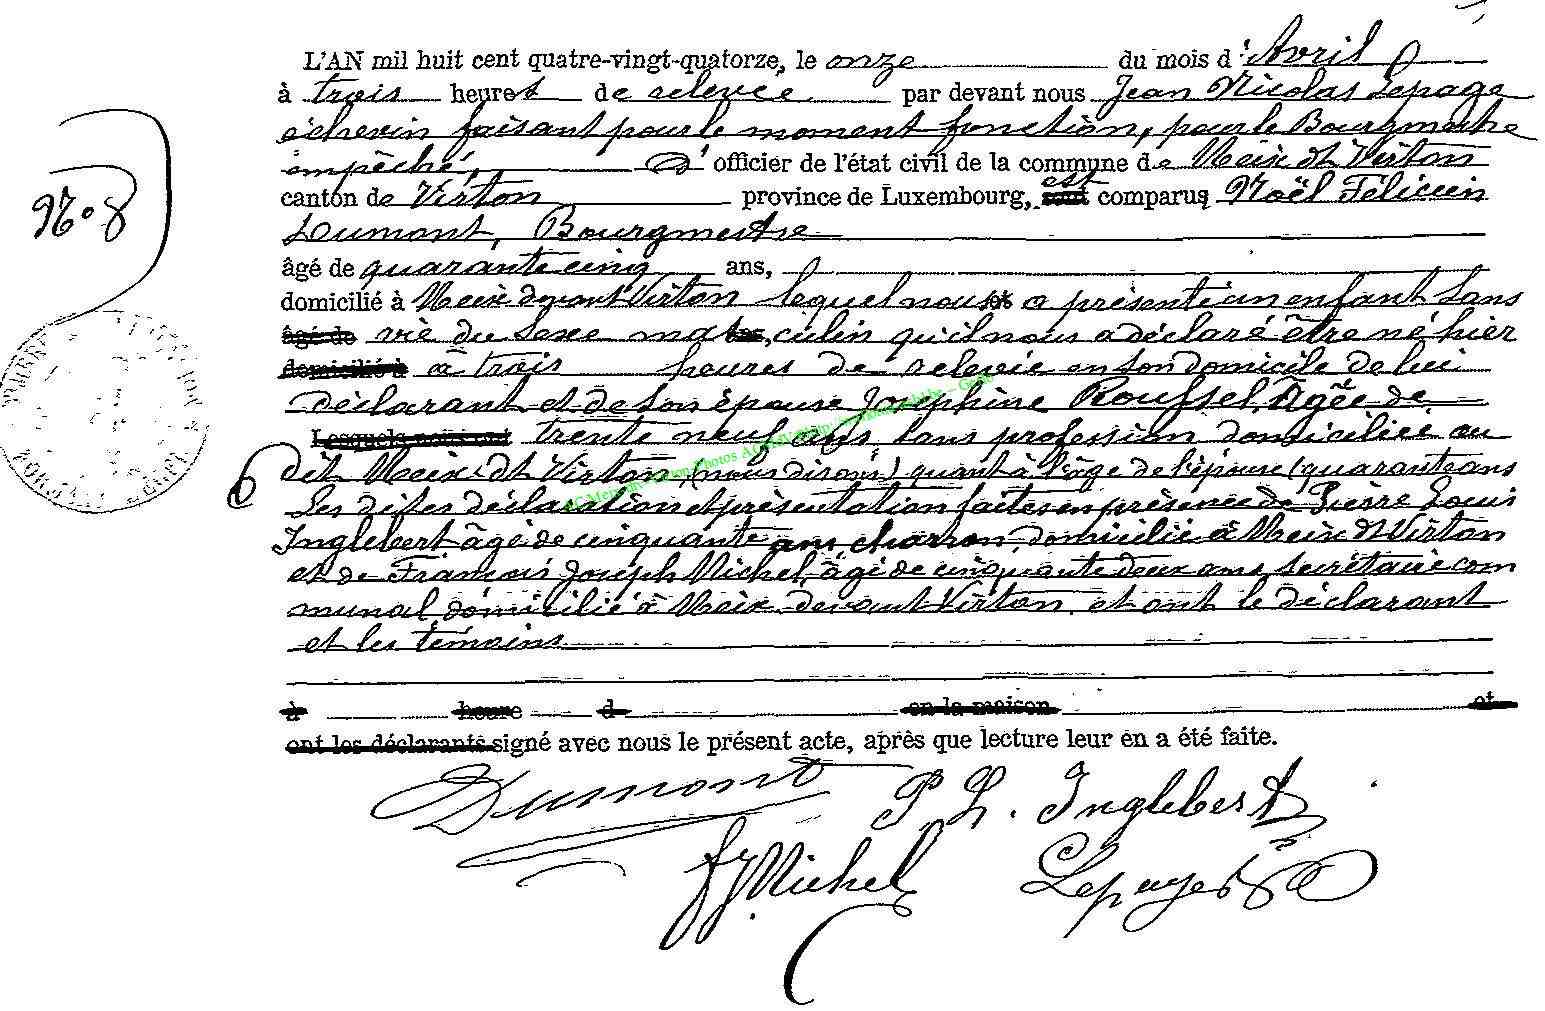 L'AN mil huit cent quatre-vingt-quatorze, le onze du mois d'Avril
à trois heures de relevée par devant nous Jean Nicolas Lepage
échevin faisant pour le moment fonction, pour le Bourgmestre
empêché, d'officier de l'état civil de la commune de Meix dt Virton
N° 8
canton de Virton province de Luxembourg, sont est comparus Noël Félicien
Dumont, Bourgmestre
âgé de quarante cinq ans,
domicilié à Meix devant Virton lequel nous a présenté un enfant sans
âgé de vie du sexe masculin qu'il nous a déclaré être né hier
domicilié à à trois heures de relevée en son domicile de lui
déclarant et de son épouse Joséphine Roussel, âgée de
Lesquels nous ont trente neuf ans, sans profession domiciliée au
dit Meix-dt Virton, (nous disons) quant à l'âge de l'épouse (quarante ans
Les dites déclaration et présentation faites en présence de Pierre Louis
Inglebert âgé de cinquante ans, charron, domicilié à Meix dt Virton
et de François Joseph Michel, âgé de cinquante deux ans secrétaire com
munal, domicilié à Meix-devant Virton, et ont le déclarant
et les témoins
à heure d en la maison et
ont les déclarants signé avec nous le présent acte, après que lecture leur en a été faite.
Dumont P L. Inglebert
fJ Michel Lepage